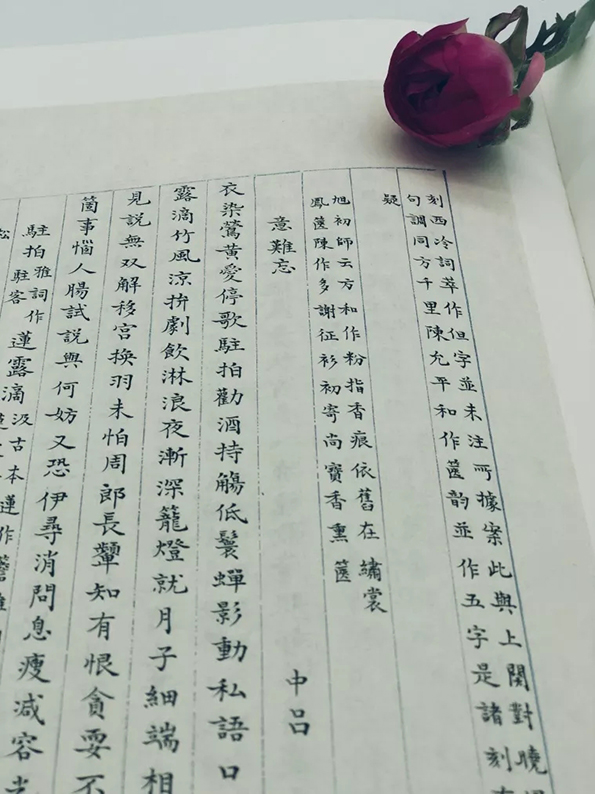 刻西冷詞萃作但字並未注所據案此與上闋對曉
句調同方千里陳允平和作篋韵並作五字是諸刻
疑
旭初師云方和作粉指香痕依舊在繡裳
鳳篋陳作多謝征衫初寄尚寶香熏篋
意難忘 中呂
衣染鶯黃愛停歌駐拍勸酒持觴低鬟蟬影動私語口
露滴竹風涼拚劇飲淋浪夜漸深籠燈就月子細端相
見說無双解移宮換羽未怕周郎長顰知有恨貪耍不
箇事惱人腸試說與何妨又恐伊尋消問息瘦減容光
駐拍雅詞作
駐客
蓮露滴
汲古本蓮作